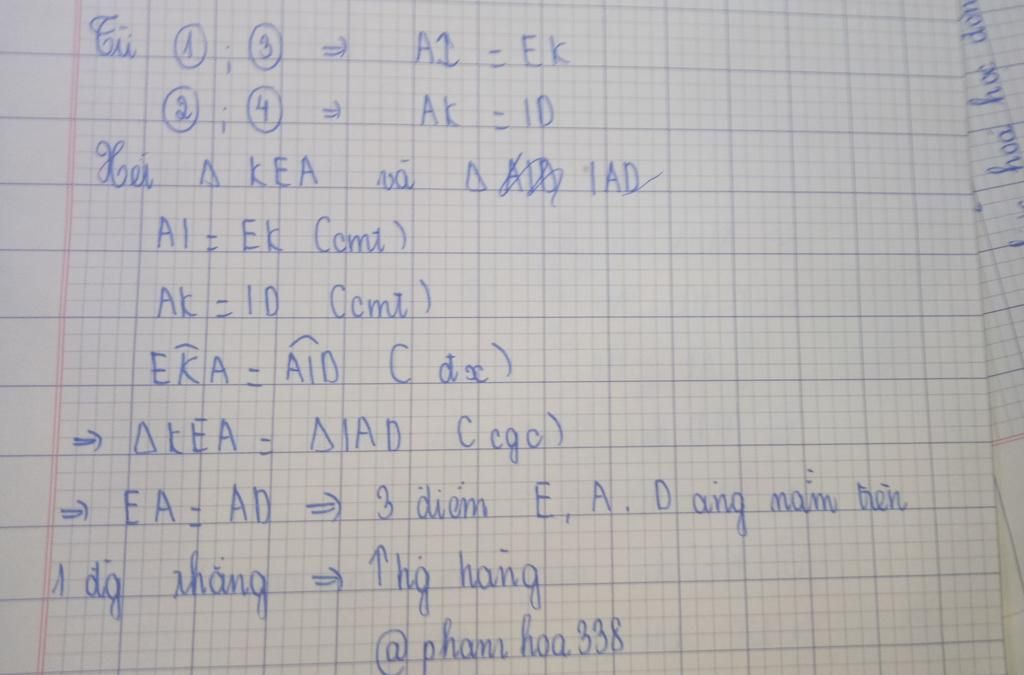 Từ ① ; ③ ⇒ AI = EK
② ; ④ ⇒ AK = ID
Xét Δ KEA và Δ IAD
AI = EK (cmt)
AK = ID (cmt)
EK̂A = AÎD ( đx )
⇒ ΔKEA = ΔIAD (cgc)
⇒ EA = AD ⇒ 3 điểm E, A, D cùng nằm trên
1 đg thẳng ⇒ Thg hàng
@phamhoa338